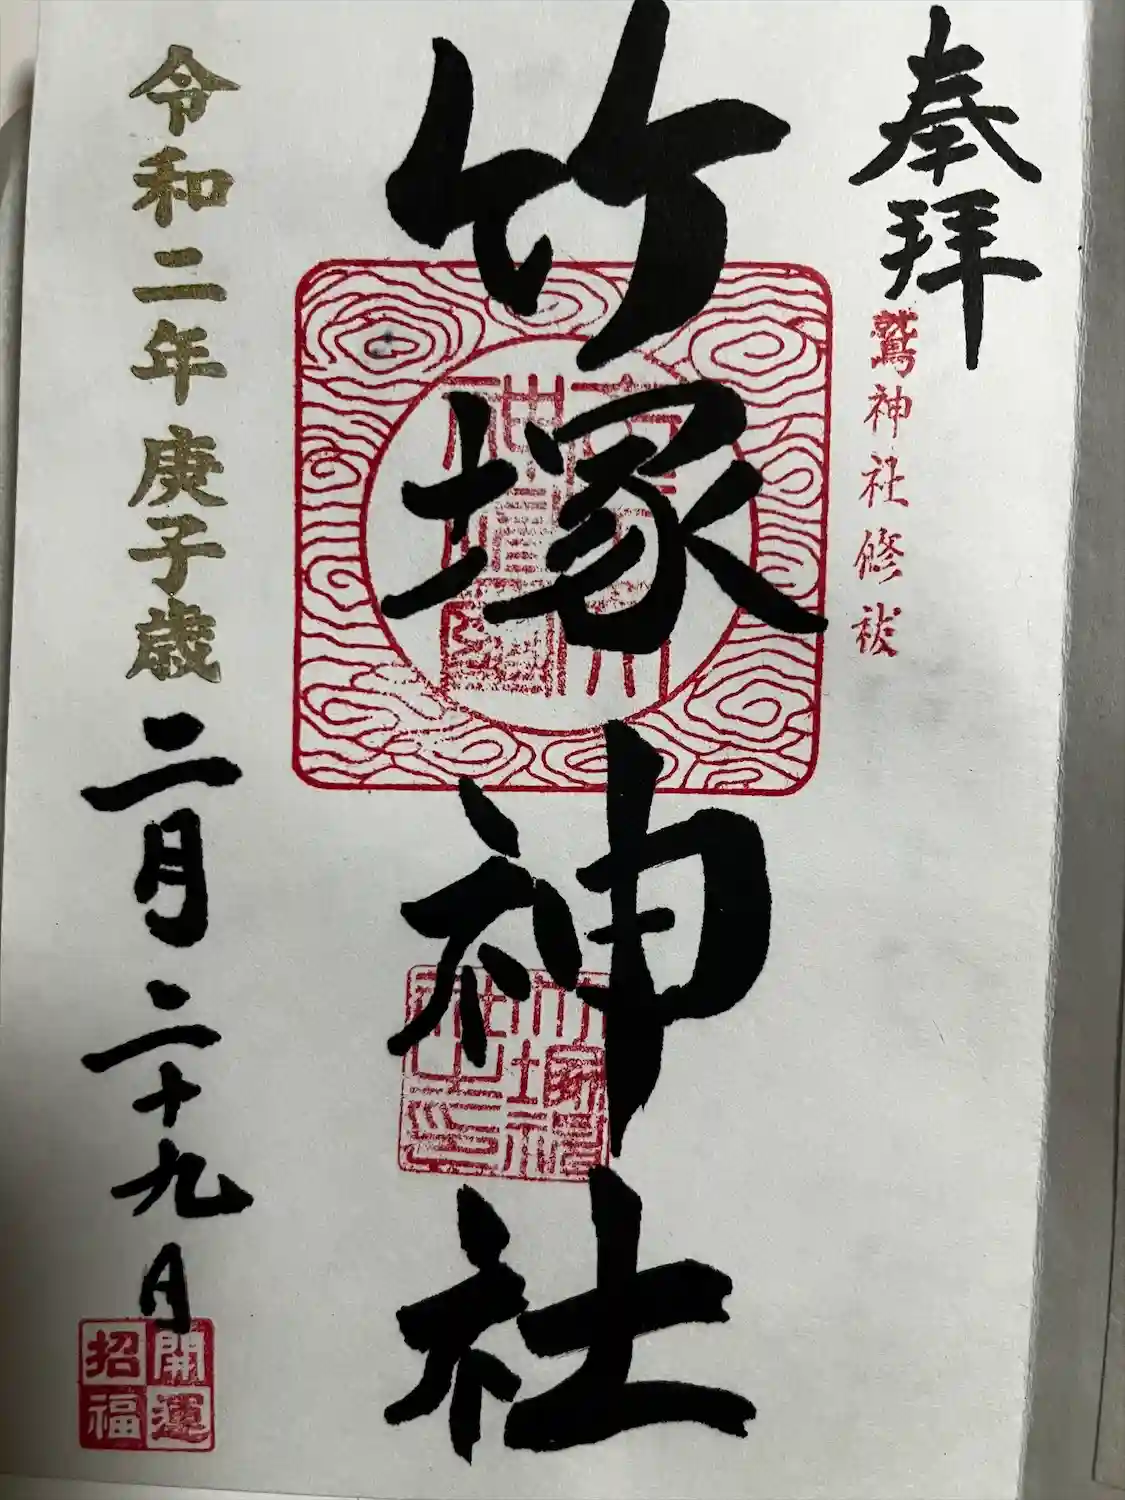 奉拝
鷲神社修祓
竹塚神社
竹塚神社之印
令和二年庚子歳二月二十九日
開運招福